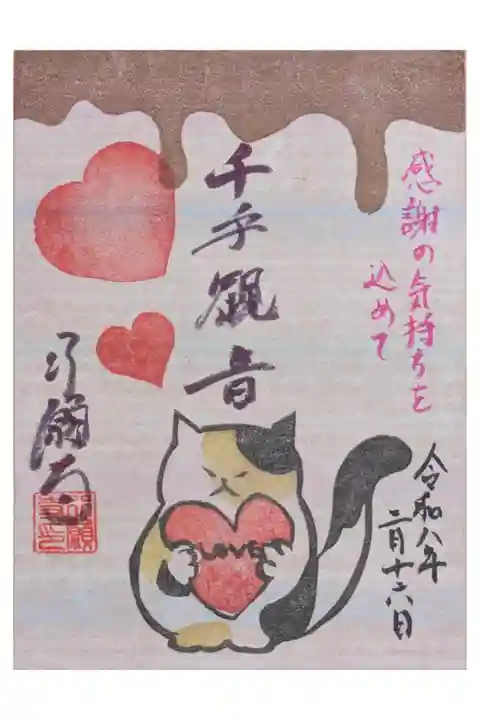 感謝の気持ちを
込めて
千手観音
令和八年
二月十六日
行願寺
LOVE